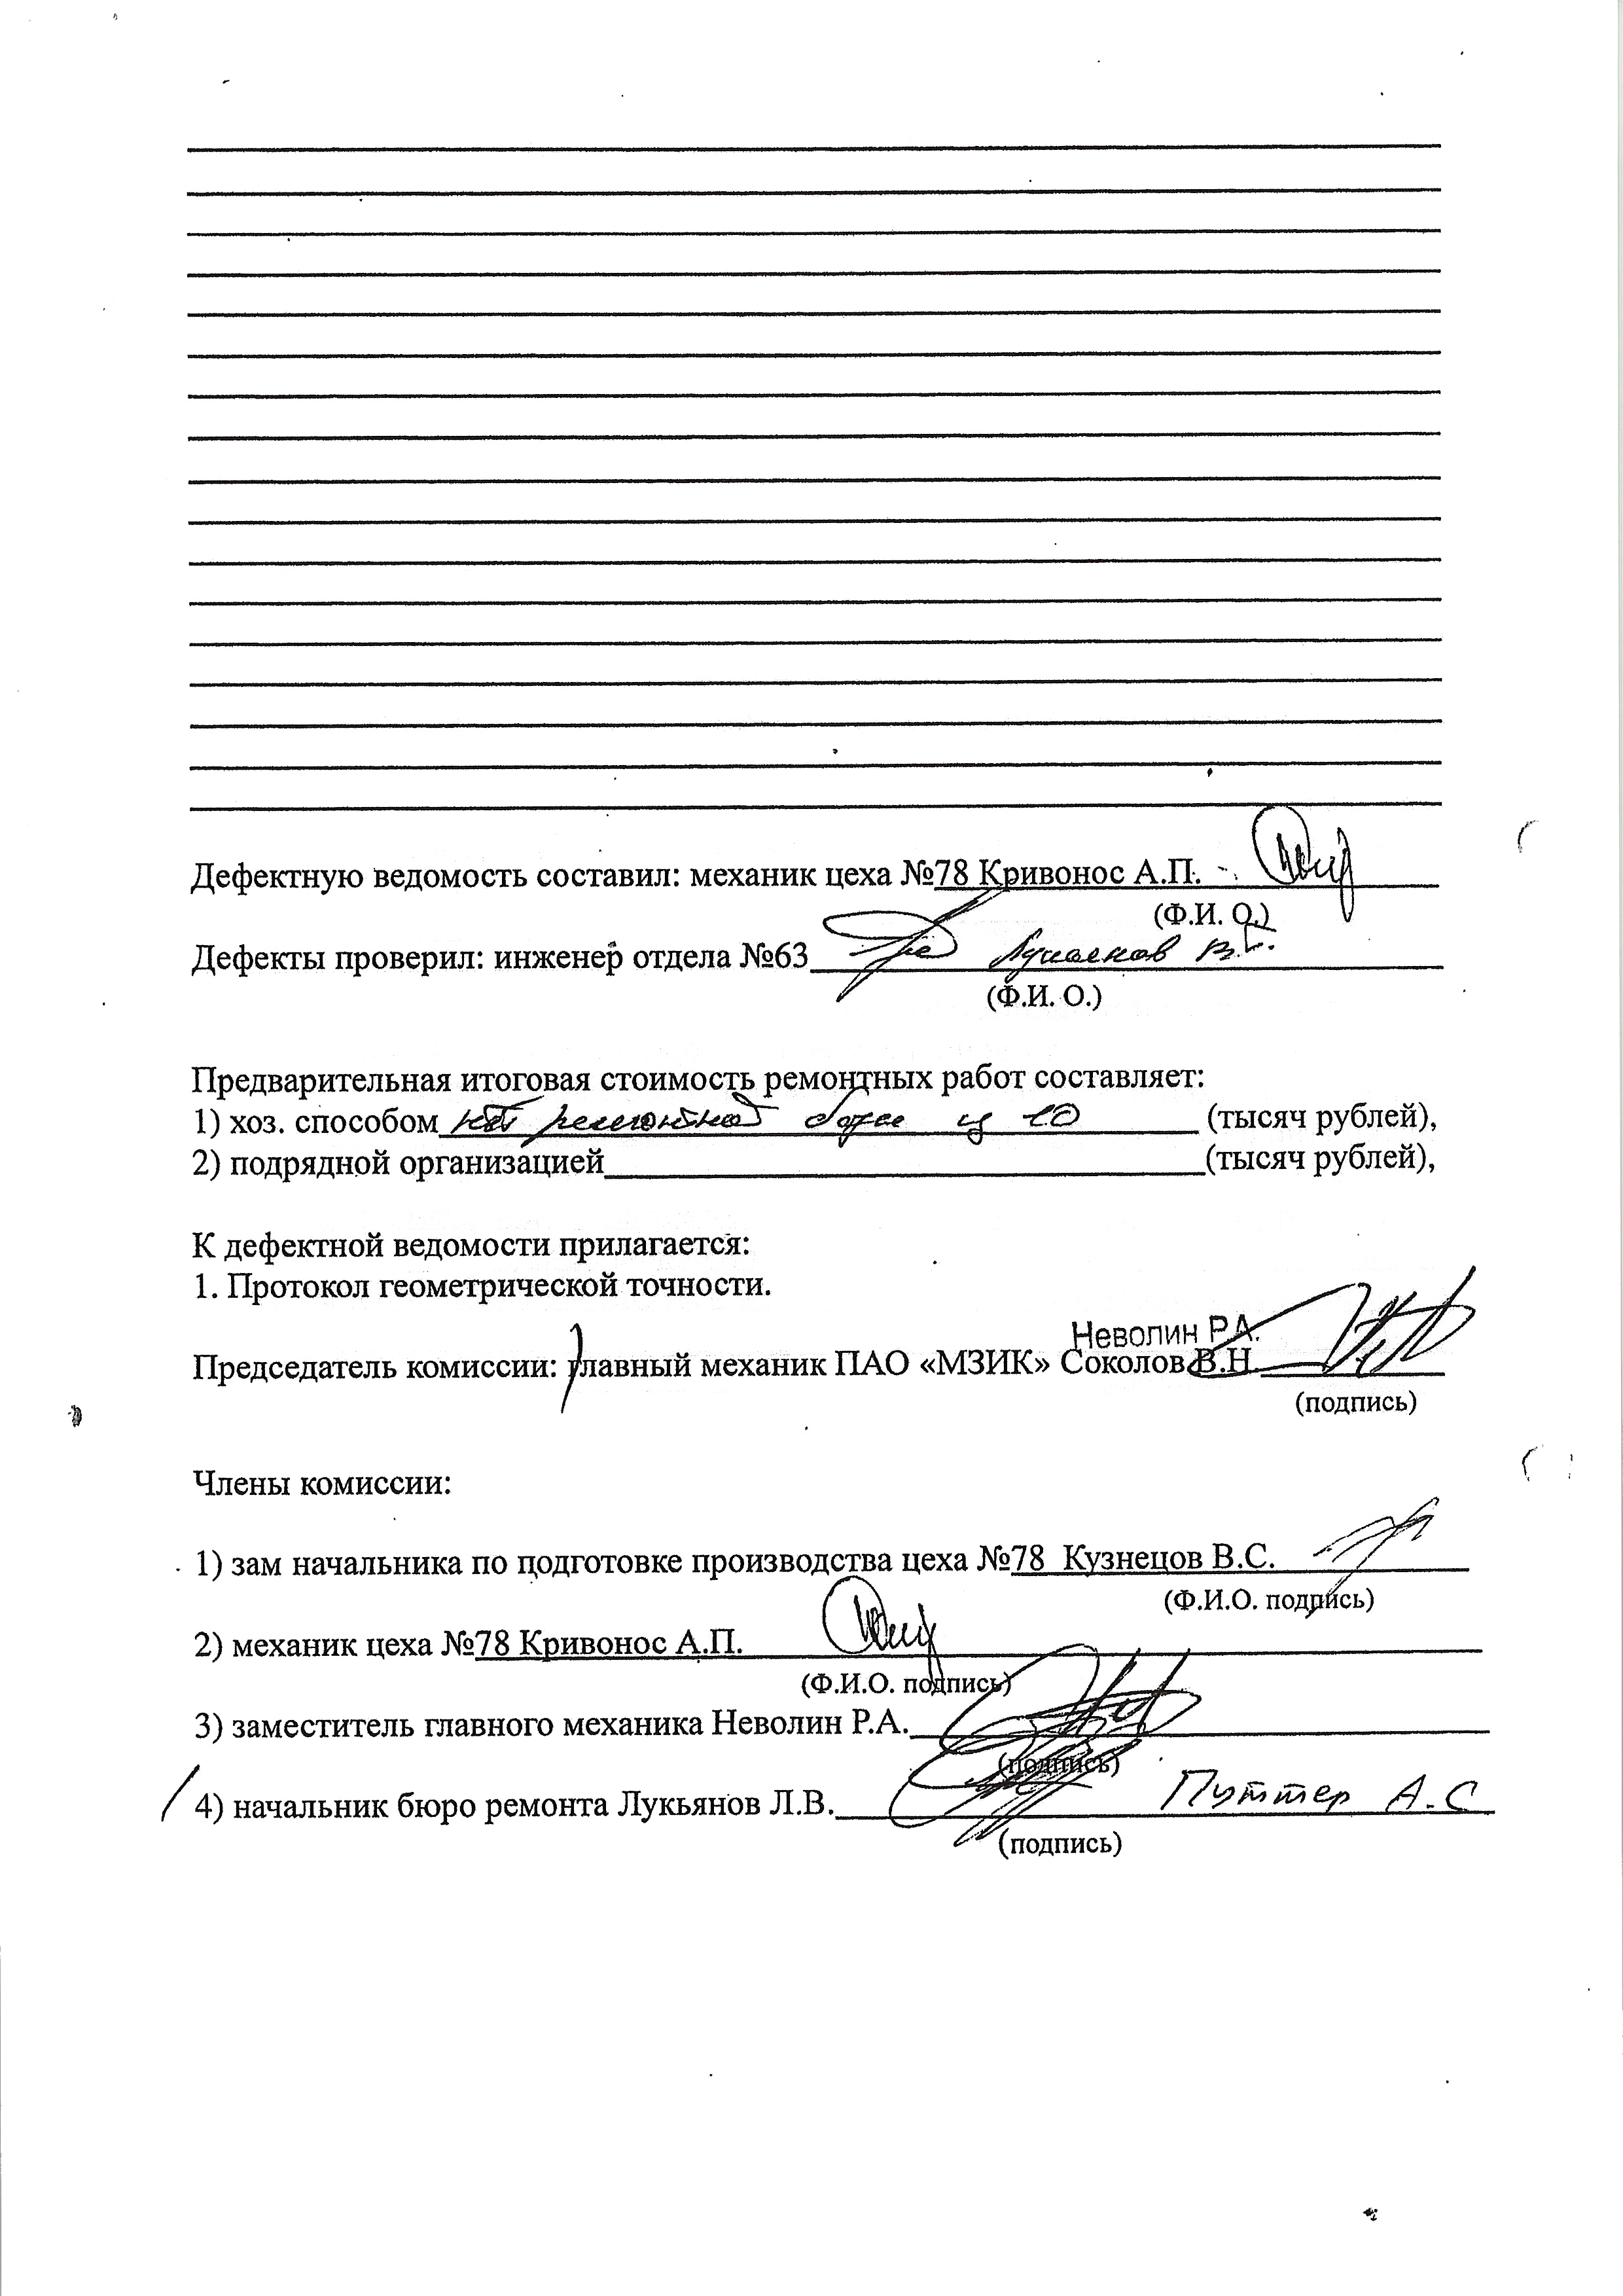 Дефектную ведомость составил: механик цеха №78 Кривонос А.П.
(Ф.И. О.)
Дефекты проверил: инженер отдела №63
(Ф.И. О.)
Предварительная итоговая стоимость ремонтных работ составляет:
1) хоз. способом нет ремонтной базы ц 20 (тысяч рублей),
2) подрядной организацией (тысяч рублей),
К дефектной ведомости прилагается:
1. Протокол геометрической точности.
Неволин Р.А.
Председатель комиссии: главный механик ПАО «МЗИК» Соколов В.Н.
(подпись)
Члены комиссии:
1) зам начальника по подготовке производства цеха №78 Кузнецов В.С.
(Ф.И.О. подпись)
2) механик цеха №78 Кривонос А.П.
(Ф.И.О. подпись)
3) заместитель главного механика Неволин Р.А.
(подпись)
4) начальник бюро ремонта Лукьянов Л.В. Путтер А.С
(подпись)